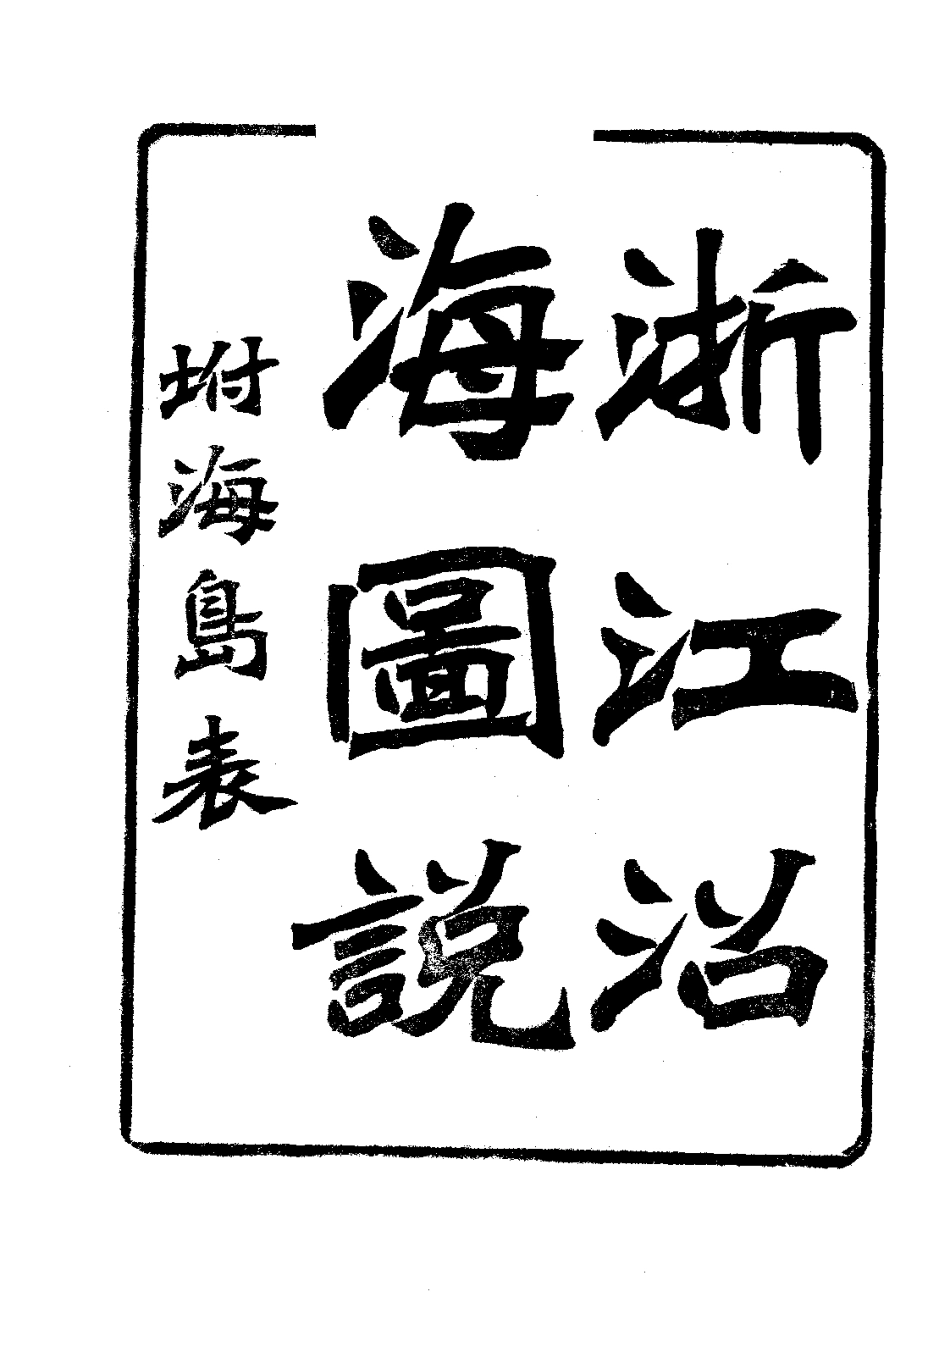 浙江沿
海圖說
坿海島表